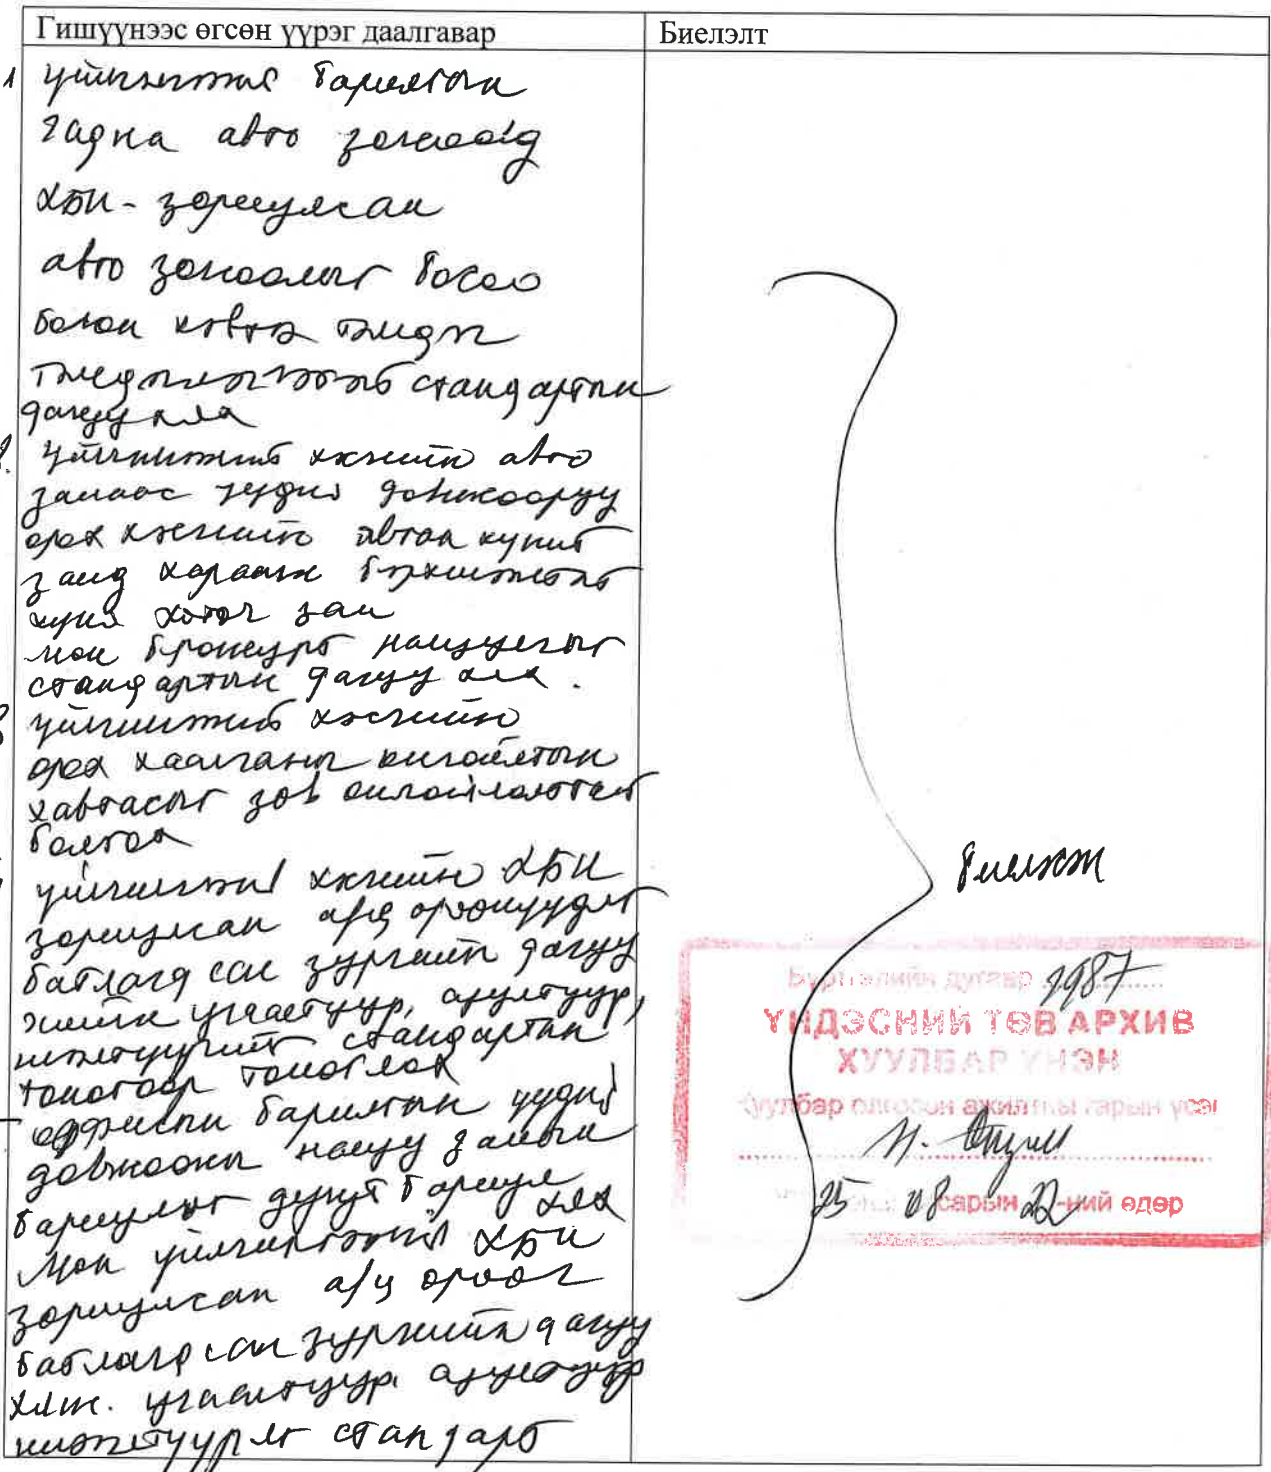 Гишүүнээс өгсөн үүрэг даалгавар
Биелэлт
1 үйлчилгээний барилгын
гадна авто зогсоолд
ХБИ- зориулсан
авто зогсоолыг босоо
болон хэвтээ тэмдэг
тэмдэглэгээтэй стандартын
дагуу хийх
2. үйлчилгээний хэсгийн авто
замаас үүдний довжооруу
орох хэсгийн явган хүний
замд харааны бэрхшээлтэй
хүний хөтөч зам
мөн налууг
стандартын дагуу хийх.
3 үйлчилгээний хэсгийн
орох хаалганы
хавтасыг зөв ойлгомжтой
болгох
үйлчилгээний хэсгийн ХБИ
зориулсан а/ц өрөөнүүдийг
батлагдсан зургийн дагуу
хийж угаалтуур, суултуур,
стандартын
тоноглох
оффисын барилгын үүдний
довжооны налуу замын
бариулыг дутуу бариул хийх
Мөн үйлчилгээний ХБИ
зориулсан а/ц өрөөг
батлагдсан зургийн дагуу
хийж. угаалтуур суултуур
стандарт
биелэгдэж
Бүртгэлийн дугаар 2987
ҮНДЭСНИЙ ТӨВ АРХИВ
ХУУЛБАР ҮНЭН
Хуулбар олгосон ажилтны гарын үсэг
25 08 сарын 22-ний өдөр